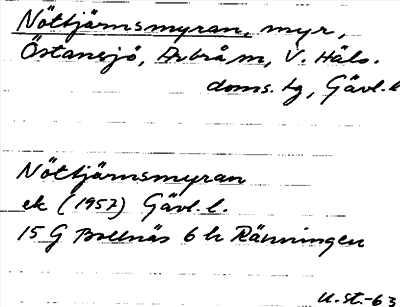 Nöttjärnsmyran, myr,
Östansjö, Arbrå m, V. Häls.
doms. tg, Gävl. l
Nöttjärnsmyran
ek (1957) Gävl. l.
15 G Bollnäs 6 h Ränningen
U. St.-63